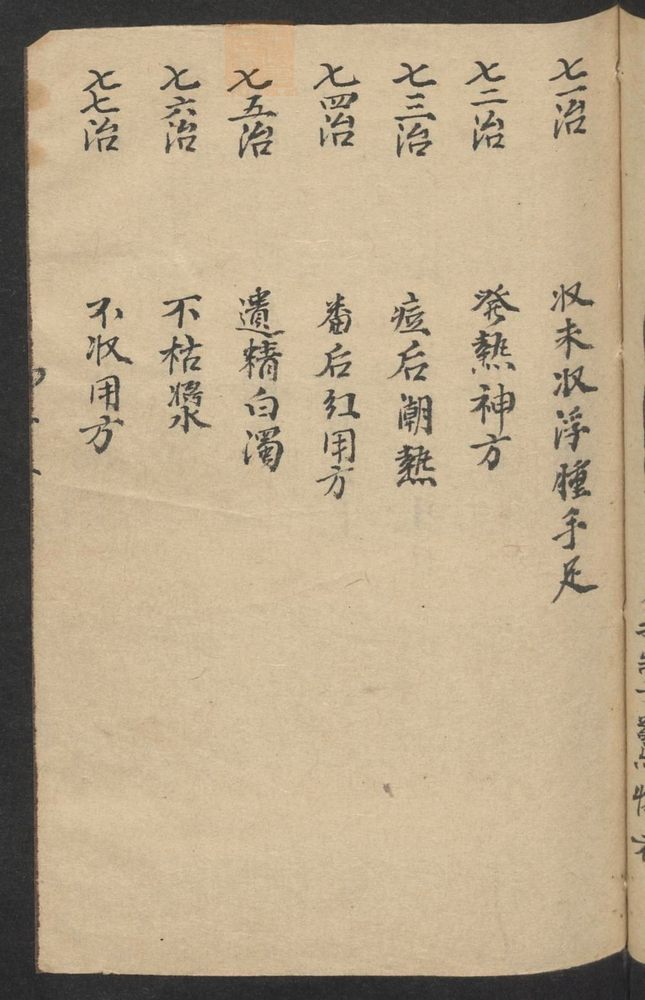 七一治 収未収浮腫手足
七二治 発熱神方
七三治 痘后潮熱
七四治 畨后紅用方
七五治 遺精白濁
七六治 不枯漿
七七治 不収用方